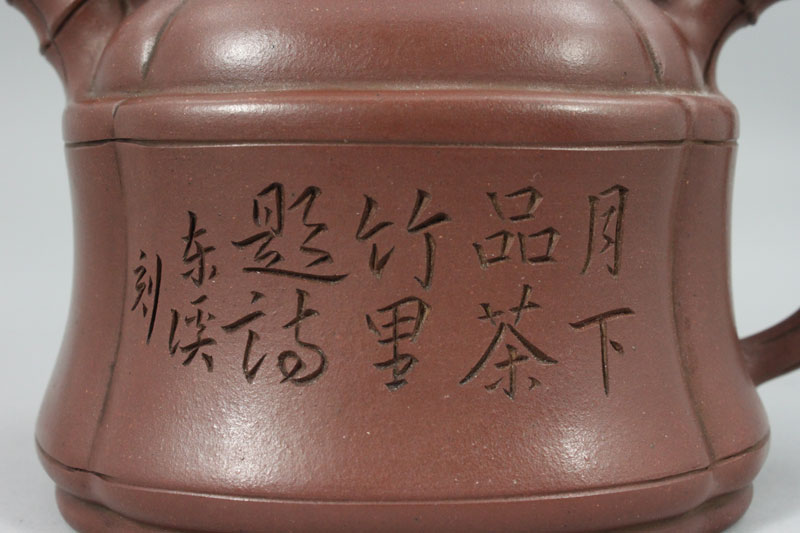 月下
品茶
竹里
题诗
东溪
刻